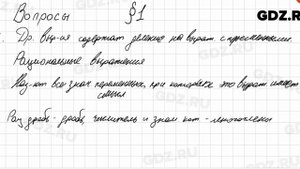 Вопросы §1
Др. выр-ия содержат деление на выраж с переменными.
Рациональные выражения
Наз-ют все знач переменных, при которых это выраж имеет смысл
Рац дробь - дробь, числитель и знам кот - многочлены
GDZ.RU